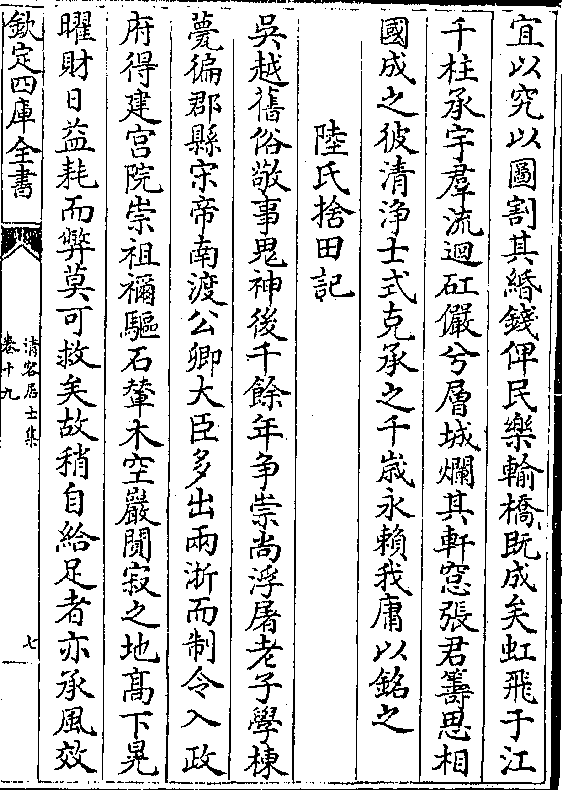 宜以究以圖割其緡錢俾民樂輸橋既成矣虹飛于江
千柱承宇羣流迴矼儼兮層城爛其軒窓張君籌思相
國成之彼清浄士式克承之千嵗永頼我庸以銘之
陸氏捨田記
吳越舊俗敬事鬼神後千餘年争崇尚浮屠老子學棟
甍徧郡縣宋帝南渡公卿大臣多出兩浙而制令入政
府得建宫院崇祖禰驅石輦木空巖閴寂之地髙下晃
曜財日益耗而弊莫可救矣故稍自給足者亦承風效
欽定四庫全書
清容居士集
卷十九
七